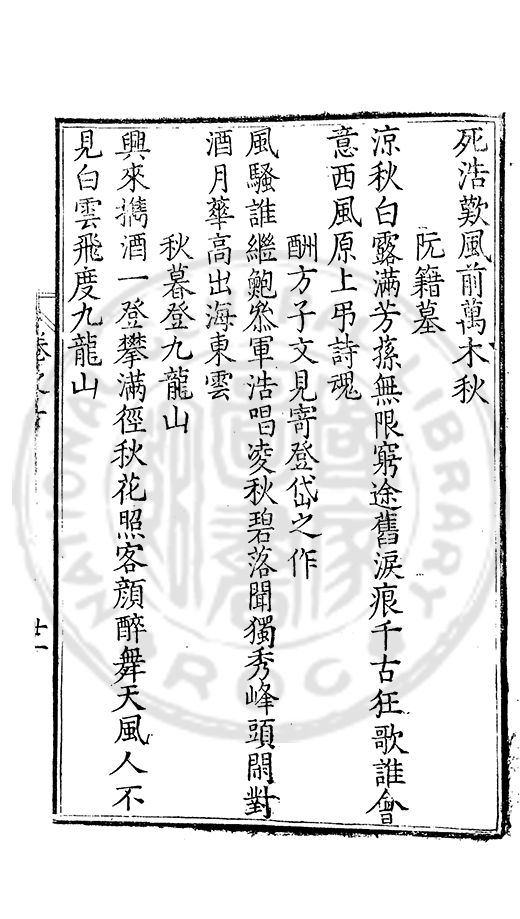 死浩歎風前萬木秋
阮籍墓
涼秋白露滿芳蓀無限窮途舊淚痕千古狂歌誰會
意西風原上弔詩魂
酬方子文見寄登岱之作
風騷誰繼鮑叅軍浩唱凌秋碧落聞獨秀峰頭閑對
酒月華高出海東雲
秋暮登九龍山
興來攜酒一登攀滿徑秋花照客顏醉舞天風人不
見白雲飛度九龍山
廿一
NATIONAL LIBRARY